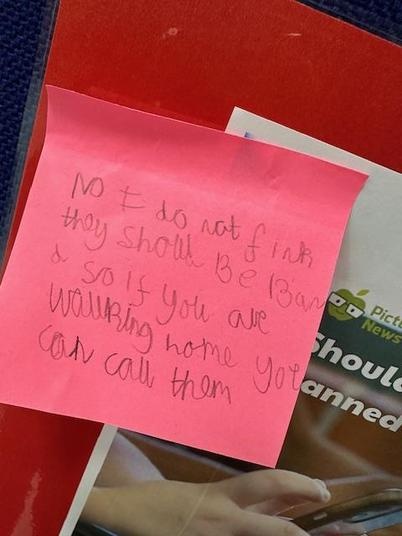 No I do not fink
they shoull Be Ban
d so if you are
wallking home you
can call them
Pictu
News
Shoul
anned